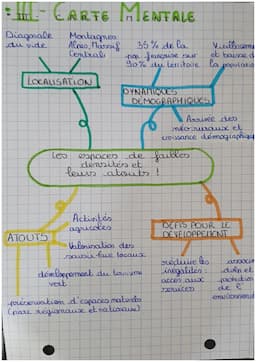 III - CARTE MENTALE
Diagonale
du vide
Montagnes
Alpes, Massif
Central
35% de la
pop française sur
90% du territoire
Vieillissement
et baisse d
la population
LOCALISATION
DYNAMIQUES
DÉMOGRAPHIQUES
Arrivée des
néo-ruraux et
croissance démographique
Les espaces de faibles
densités et
leurs atouts !
ATOUTS
Activités
agricoles
Valorisation des
savoir-faire locaux
développement du tourisme
vert
préservation d'espaces naturels
(parc régionaux et nationaux)
DÉFIS POUR LE
DÉVELOPPEMENT
réduire les
inégalités :
accès aux
services
associer
dvlp et
protection
de l'
environnement